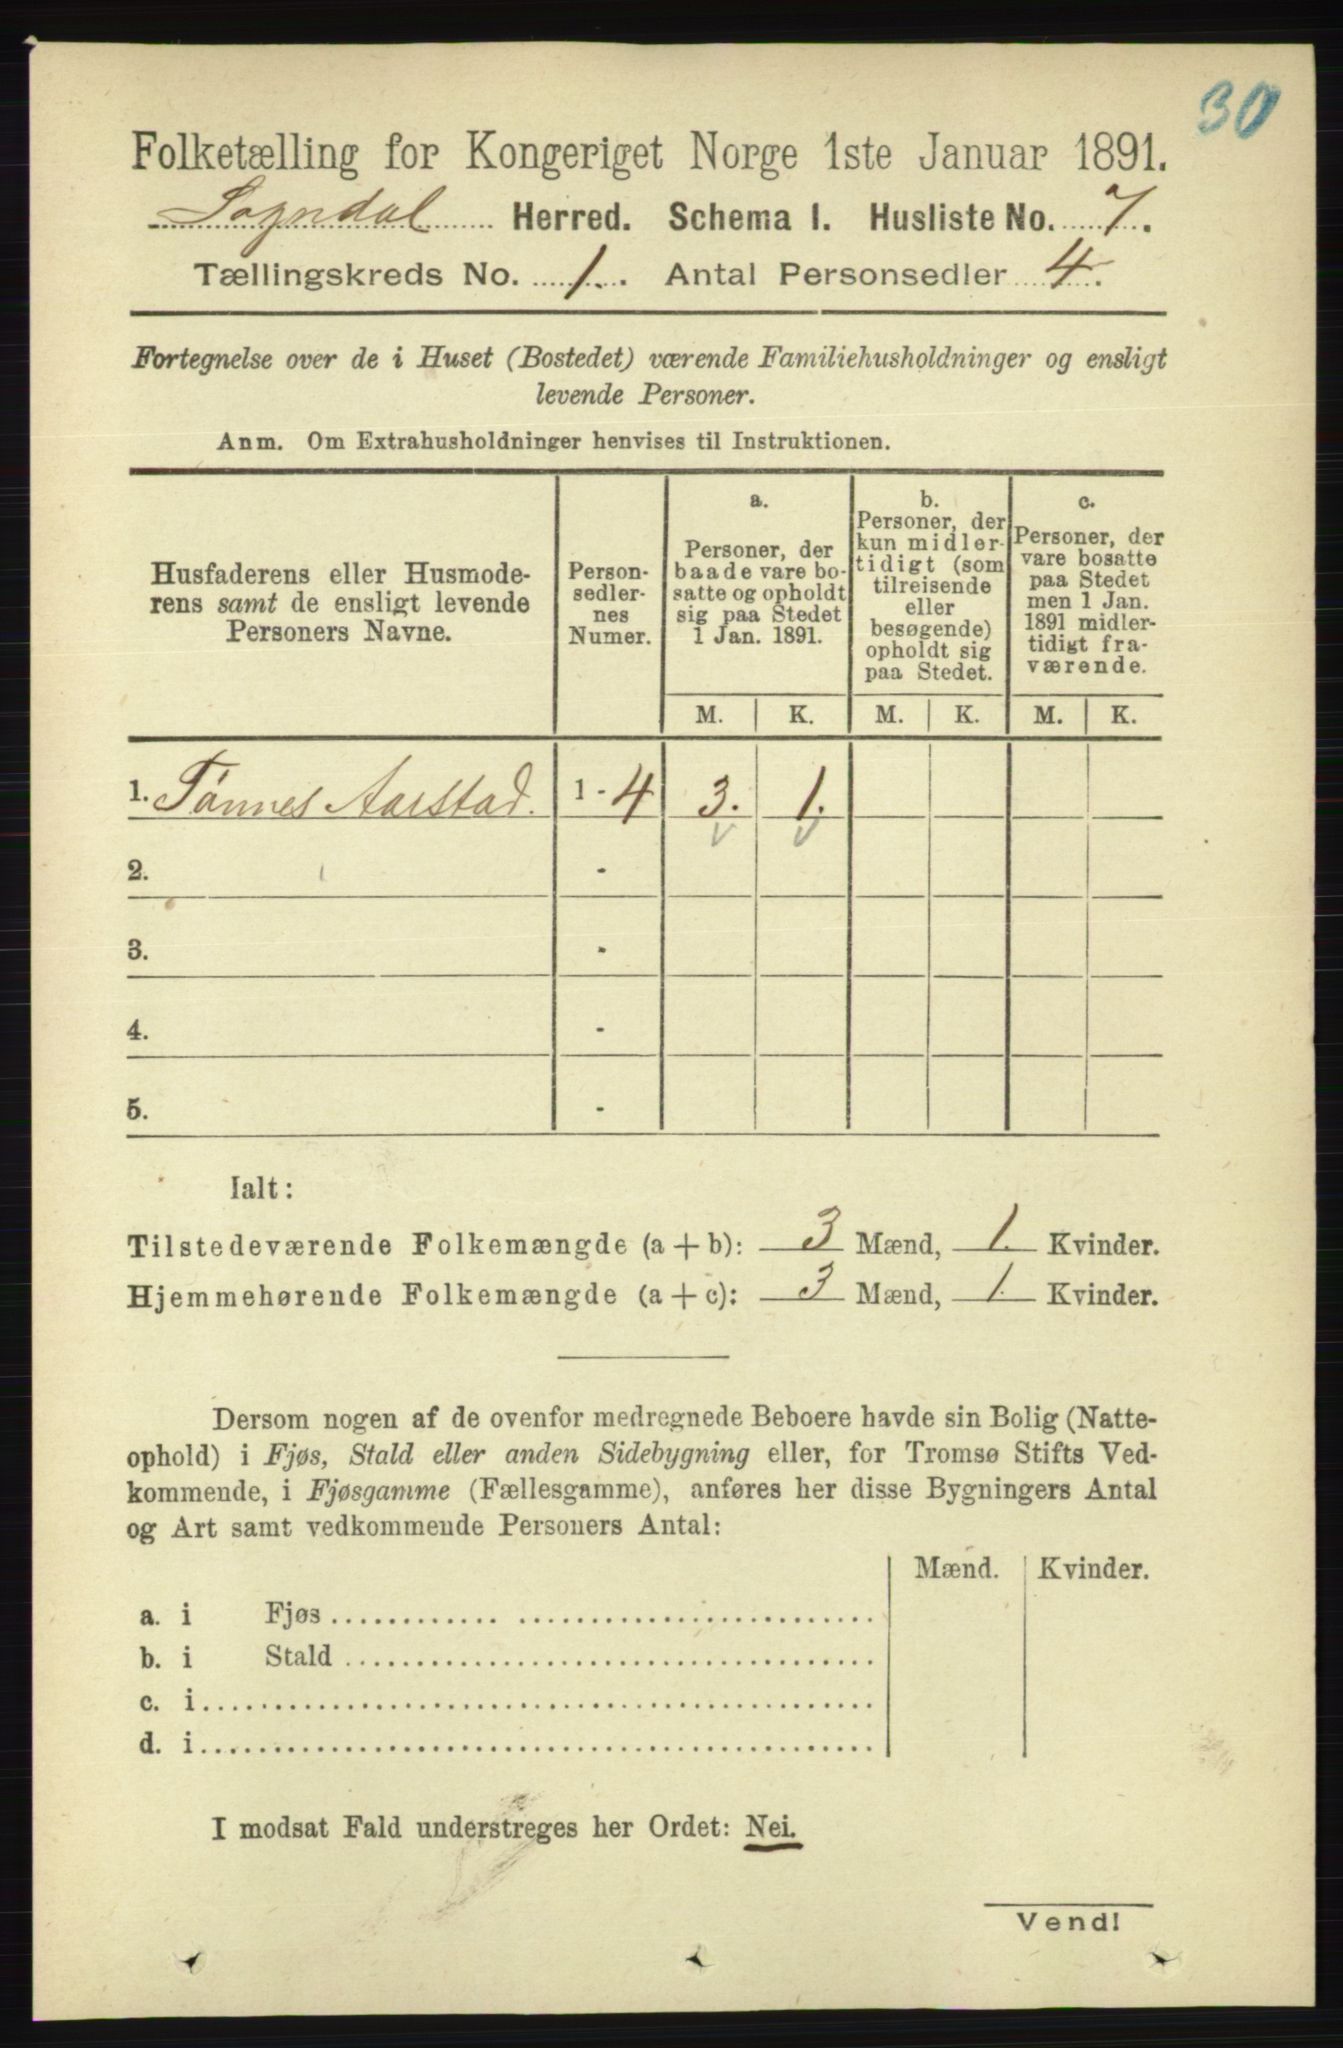 30
Folketælling for Kongeriget Norge 1ste Januar 1891.
Sogndal Herred. Schema I. Husliste No. 7.
Tællingskreds No. 1. Antal Personsedler 4.
Fortegnelse over de i Huset (Bostedet) værende Familiehusholdninger og ensligt
levende Personer.
Anm. Om Extrahusholdninger henvises til Instruktionen.
Husfaderens eller Husmode-
rens samt de ensligt levende
Personers Navne.
Person-
sedler-
nes
Numer.
a.
Personer, der
baade vare bo-
satte og opholdt
sig paa Stedet
1 Jan. 1891.
b.
Personer, der
kun midler-
tidigt (som
tilreisende
eller
besøgende)
opholdt sig
paa Stedet.
c.
Personer, der
vare bosatte
paa Stedet
men 1 Jan.
1891 midler-
tidigt fra-
værende.
M. K. M. K. M. K.
1. Tønnes Aarstad. 1 - 4 3. 1.
2. -
3. -
4. -
5. -
Ialt:
Tilstedeværende Folkemængde (a + b): 3 Mænd, 1. Kvinder.
Hjemmehørende Folkemængde (a + c): 3 Mænd, 1. Kvinder.
Dersom nogen af de ovenfor medregnede Beboere havde sin Bolig (Natte-
ophold) i Fjøs, Stald eller anden Sidebygning eller, for Tromsø Stifts Ved-
kommende, i Fjøsgamme (Fællesgamme), anføres her disse Bygningers Antal
og Art samt vedkommende Personers Antal:
Mænd. Kvinder.
a. i Fjøs
b. i Stald
c. i
d. i
I modsat Fald understreges her Ordet: Nei.
Vend!